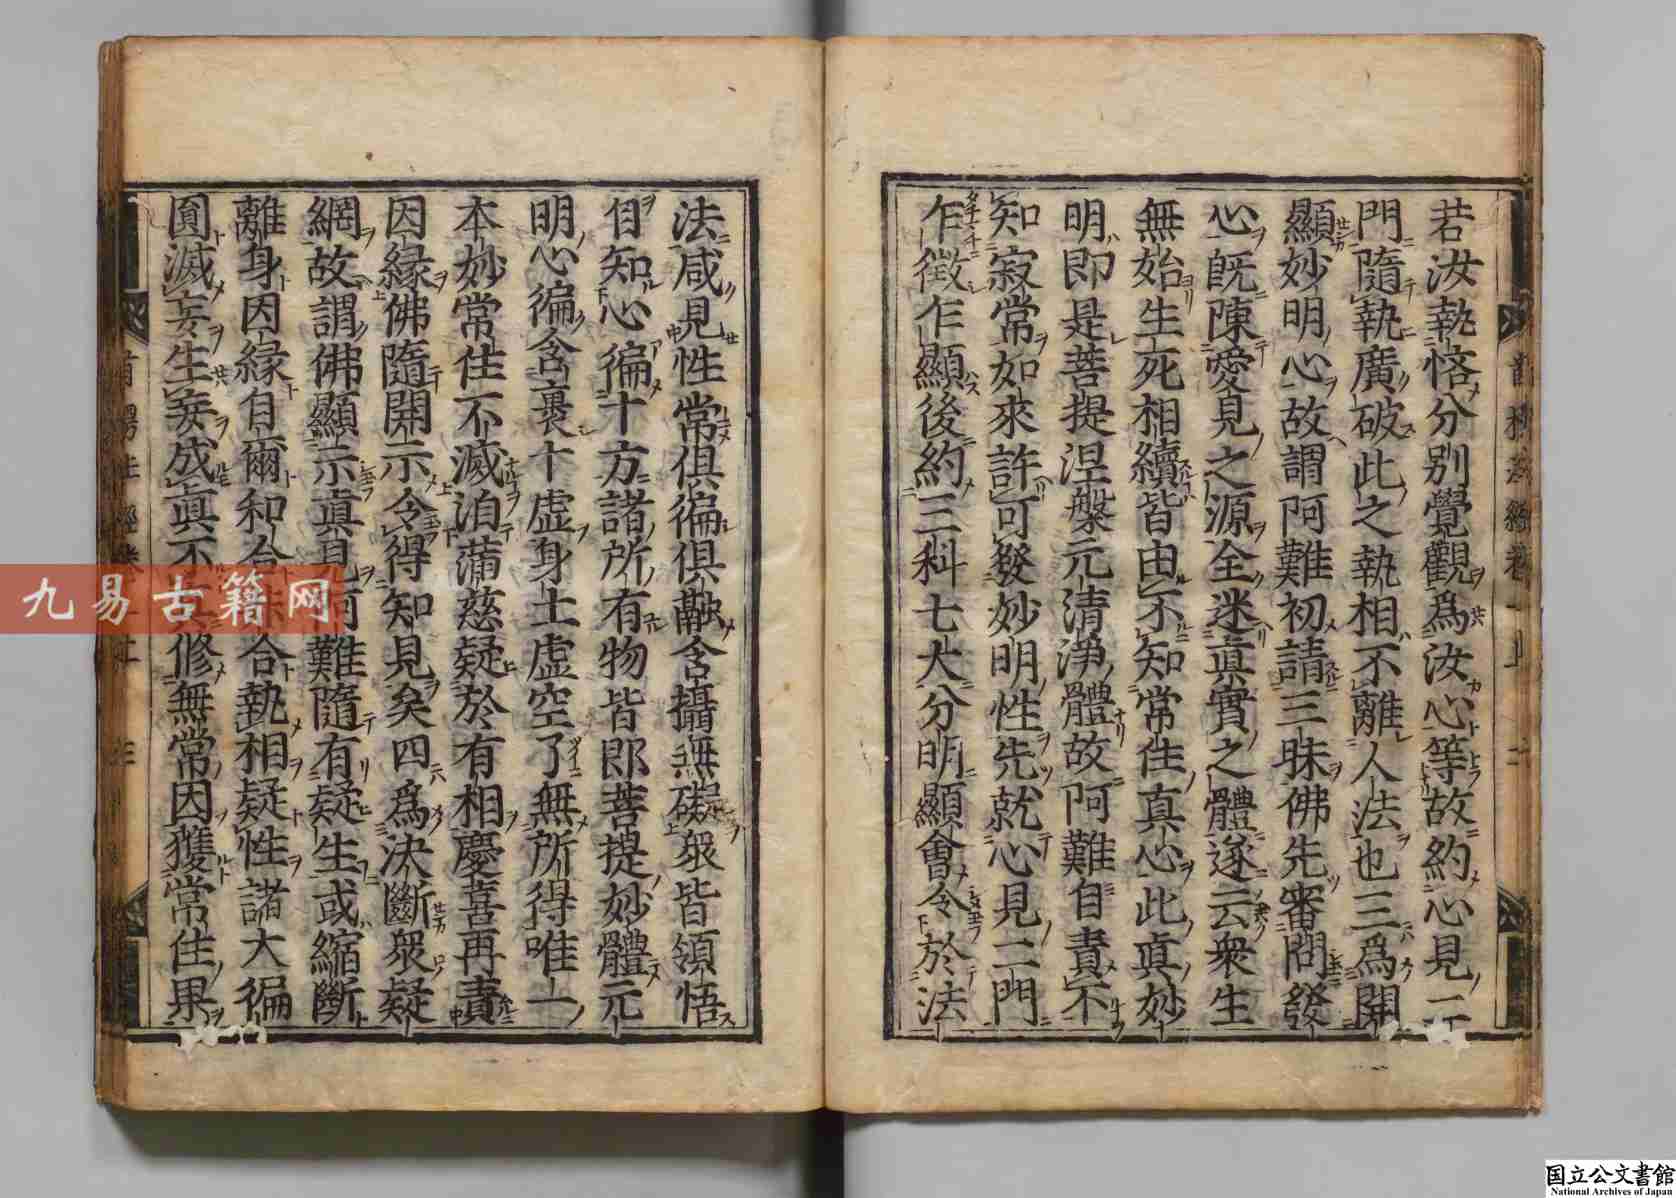 若汝執悋分別覺觀爲汝心等故約心見二
門隨執廣破此之執相不離人法也三爲開
顯妙明心故謂阿難初請三昧佛先審問發
心既陳愛見之源全迷眞實之體遂云衆生
無始生死相續皆由不知常住真心此真妙
明即是菩提涅槃元清淨體故阿難自責不
知寂常如來許可發妙明性先就心見二門
乍徵乍顯後約三科七大分明顯會令於法
法咸見性常俱徧俱融含攝無礙衆皆領悟
自知心徧十方諸所有物皆即菩提妙體元
明心徧含裹十虛身土虛空了無所得唯一
本妙常住不滅洎蒲慈疑於有相慶喜再責
因緣佛隨開示令得知見矣四爲決斷衆疑
網故謂佛顯示真見阿難隨有疑生或縮斷
離身因緣自爾和合 合執相疑性諸大徧
圓滅妄生妄成真不 修無常因獲常住果
首楞 經卷 上
九易古籍网
国立公文書館
National Archives of Japan